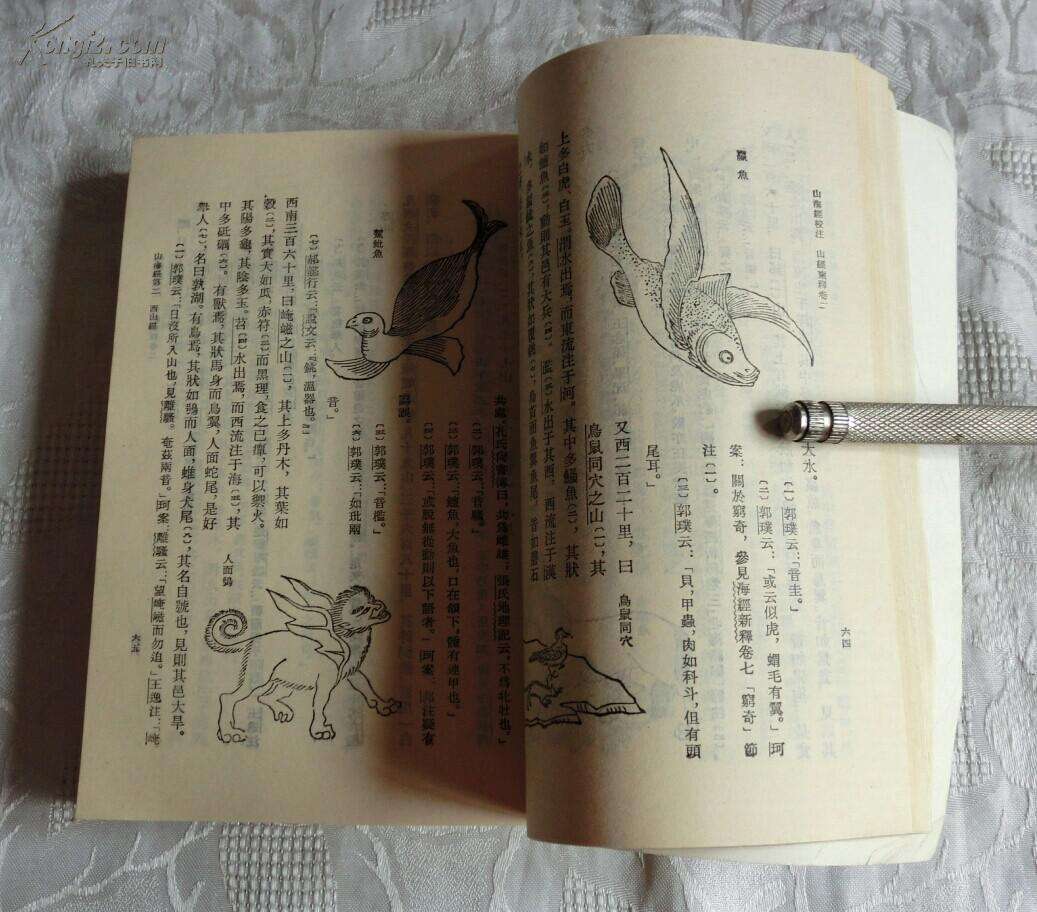 山海經校注 山經柬釋卷二
六四
蠃魚
大水。
〔一〕郭璞云:「音圭。」
〔二〕郭璞云:「或云似虎,蝟毛有翼。」珂
案:關於窮奇,參見海經新釋卷七「窮奇」節
注〔一〕。
〔三〕郭璞云:「貝,甲蟲,肉如科斗,但有頭
尾耳。」
又西二百二十里,曰
鳥鼠同穴之山〔一〕,其
鳥鼠同穴
上多白虎、白玉。渭水出焉,而東流注于河。其中多鰠魚〔二〕,其狀
如鱣魚〔三〕,動則其邑有大兵〔四〕。濫〔五〕水出于其西,西流注于漢
水,多䰷魮之魚〔六〕,其狀如覆銚〔七〕,鳥首而魚翼魚尾,音如磬石
共處,孔氏尚書傳曰,共爲雌雄;張氏地理記云,不爲牝牡也。」
〔二〕郭璞云:「音騷。」
〔三〕郭璞云:「鱣魚,大魚也,口在頷下,體有連甲也。」
〔四〕郭璞云:「或脫無從動則以下語者。」珂案:
〔五〕郭璞云:「音檻。」
〔六〕郭璞云:「如玭兩
音。」
䰷魮魚
〔七〕郝懿行云:「說文云:『銚,溫器也。』
西南三百六十里,曰崦嵫之山〔一〕,其上多丹木,其葉如
穀〔二〕,其實大如瓜,赤符〔三〕而黑理,食之已癉,可以禦火。
其陽多龜,其陰多玉。苕〔四〕水出焉,而西流注于海〔五〕,其
中多砥礪〔六〕。有獸焉,其狀馬身而鳥翼,人面蛇尾,是好
舉人〔七〕,名曰孰湖。有鳥焉,其狀如鴞而人面,蜼身犬尾〔八〕,其名自號也,見則其邑大旱。
人面鴞
〔一〕郭璞云:「日沒所入山也,見離騷。奄茲兩音。」珂案:離騷云:「望崦嵫而勿迫。」王逸注:「崦
山海經卷二 西山經
六五
kongfz.com
孔夫子旧书网